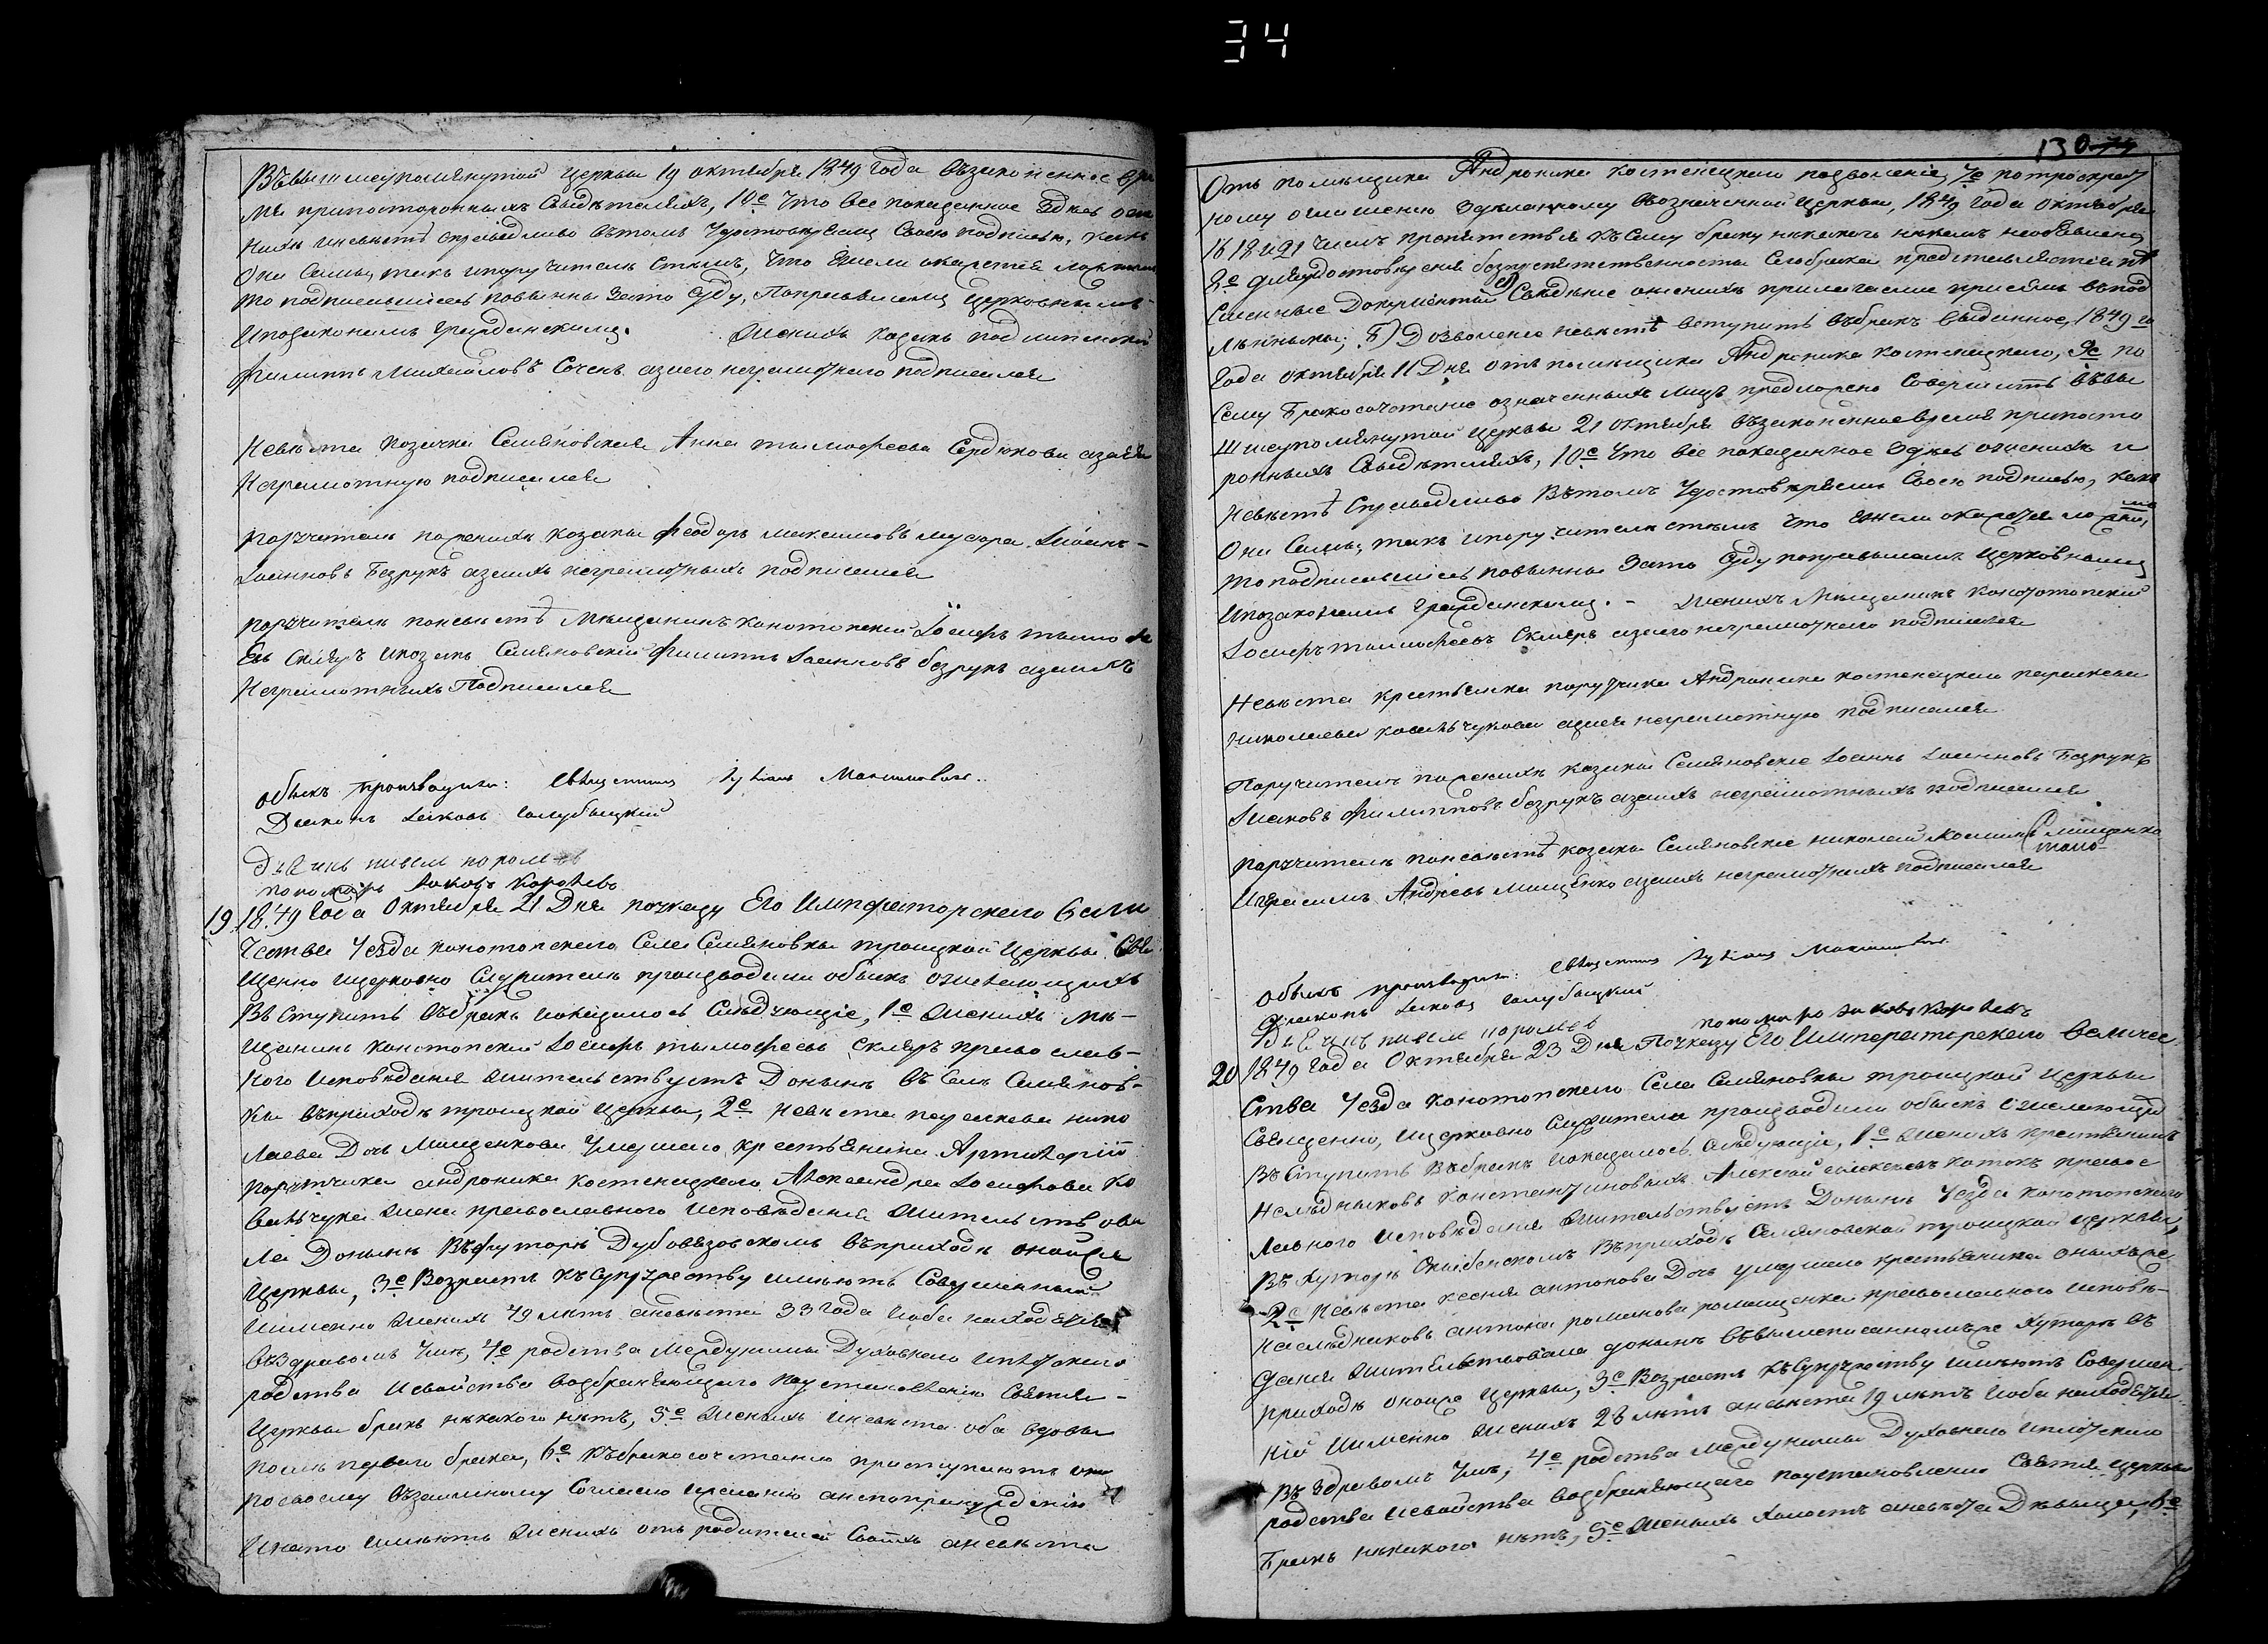 34
130
Въ вышеупомянутой церкви 19 октября 1849 года въ законенное вре
мя при посторонныхъ свидѣтеляхъ, 10е Что все показанное здесь о же
нихѣ и невѣстѣ справедливо въ томъ удостовѣряемъ своею подписью, какъ
Они сами, такъ и поручители стѣмъ, что ежели окажется
то подписавшиеся повынны за то суду, По правиламъ церковнымъ
и по законамъ гражданскимъ. Женихъ козакъ
Филиппъ Михайловъ а за его неграмотного подписался
Невѣста козачка Семяновская Анна Тимофеева Сердюкова а за ея
Неграмотную подписался
Поручители по женихѣ козаки Феодоръ Максимовъ
Іоанновъ Безрукъ а за ихъ неграмотныхъ подписался
поручители по невѣстѣ мѣщанинъ конотопский Іосифъ Тимофе
евъ Скляръ и козакъ Семяновский Филиппъ Іоанновъ безрукъ а за ихъ
неграмотныхъ Подписался
Обыскъ производили: Священникъ Максимовичъ
Диаконъ Іаковъ Голубицкий
Дьячекъ
пономарь Іаковъ
19. 1849 года Октября 21 Дня по указу Его Императорского Вели
чества уезда конотопского Села Семяновки троицкой Церкви Свя
щенно и церковно служители производили обыскъ о желающихъ
Въступить въ бракъ и оказалось следующие, 1е Женихъ мѣ-
щанинъ конотопский Іосифъ Тимофеевъ Скляръ православ-
ного исповѣдания жительствуетъ Донынѣ въ селѣ Семянов-
кы въ приходѣ троицкой церквы, 2е Невѣста параскева нико
лаева Дочь Мищенкова умершего крестьянина
поручика андроника костенецкаго Александра Іосифова Ко
вальчука жена православного исповѣдания жительствова
ла Донынѣ въ хуторѣ Дубовязовскомъ въ приходѣ онойже
Церквы, 3е Возрастъ къ супружеству имѣютъ Совершенный
Именно женихъ 49 лѣтъ а невѣста 33 года и оба находятся
въ здравомъ умѣ, 4е родства между ними Духовного и плотского
родства и свойства возбраняющаго по установлению святыя-
Церквы бракъ никакого нѣтъ, 5е Женихъ и невѣста оба вдовы
послѣ первого брака, 6е Къ бракосочетанию приступаютъ они
по своему взаимному Согласию и желанию а не по принуждению
И на то имѣютъ женихъ отъ родителей своихъ а невѣста
Отъ помѣщика Андроника костенецкого позволение, 7е по троекрат
ному оглашению зделанному въ означенной церкви, 1849 года октября
16 18 и 21 чиселъ препятствия къ сему браку никакого никемъ необявлено
8е для удостовѣрения безпрепятственности сего брака представляются пи
сменные Документы а) Сведение о женихѣ прилагаемое при семъ въ под
линныке; б) Дозволение невѣстѣ вступить въ бракъ выданное, 1849 го
года октября 11 Дня отъ помѣщика Андроника костенецкого, 9е по
сему бракосочетание означенныхъ лицъ предположено совершить въ вы
шеупомянутой церкви 21 октября въ законенное время при посто
ронныхъ свидѣтеляхъ, 10е Что все показанное здесь о женихѣ и
невѣстѣ справедливо въ томъ удостовѣряемъ своею подписью, какъ
Они сами, такъ и поручители стѣмъ что ежели окажется
то подписавшиеся повынны за то суду по правиламъ церковнымъ
и по законамъ гражданскимъ.- Женихъ мѣщанинъ конотопский
Іосифъ Тимофеевъ Скляръ а за его неграмотного подписался
Невѣста крестьянка поручика Андроника костенецкаго параскева
николаева ковальчукова а за ея неграмотную подписался
Поручители по женихѣ козаки Семяновские Іоаннъ Іоанновъ Безрукъ
Іаковъ Филипповъ безрукъ а за ихъ неграмотныхъ подписался
поручители по невѣстѣ козаки Семяновские николай
и Герасимъ Андреевъ Мищенко а за ихъ неграмотныхъ подписался
Обыскъ производили: Священникъ Максимовичъ
Диаконъ Іаковъ Голубицкий
Дьячекъ пономарь Іаковъ
20 1849 года Октября 23 Дня По указу Его Императорского величе
ства уезда конотопского Села Семяновки троицкой церквы
Священно, и церковно служители производили обыскъ о желающихъ
въступить въ бракъ и оказалось следующие, 1е Женихъ крестьянинъ
наследныковъ Константиновыхъ Алексей катокъ правос
лавного исповѣдания жительствуетъ Донынѣ уезда конотопского
въ хуторѣ въ приходѣ Семяновской троицкой церквы,
2е Невѣста ксения антонова Дочь умершего крестьянина оныхъ же
наследниковъ антона романова ромащенка православного исповѣ-
дания жительствовала донынѣ въ вышеписанномъ же хуторѣ въ
приходѣ онойже церквы, 3е Возрастъ къ супружеству имѣютъ Совершен
ный Именно женихъ 28 лѣтъ а невѣста 19 лѣтъ и оба находятся
въ здравомъ умѣ, 4е родства между ними Духовного и плотского
родства и свойства возбраняющаго по установлению Святыя церквы
Бракъ никакого нѣтъ, 5е Женихъ холостъ а невѣста Дѣвица, 6е